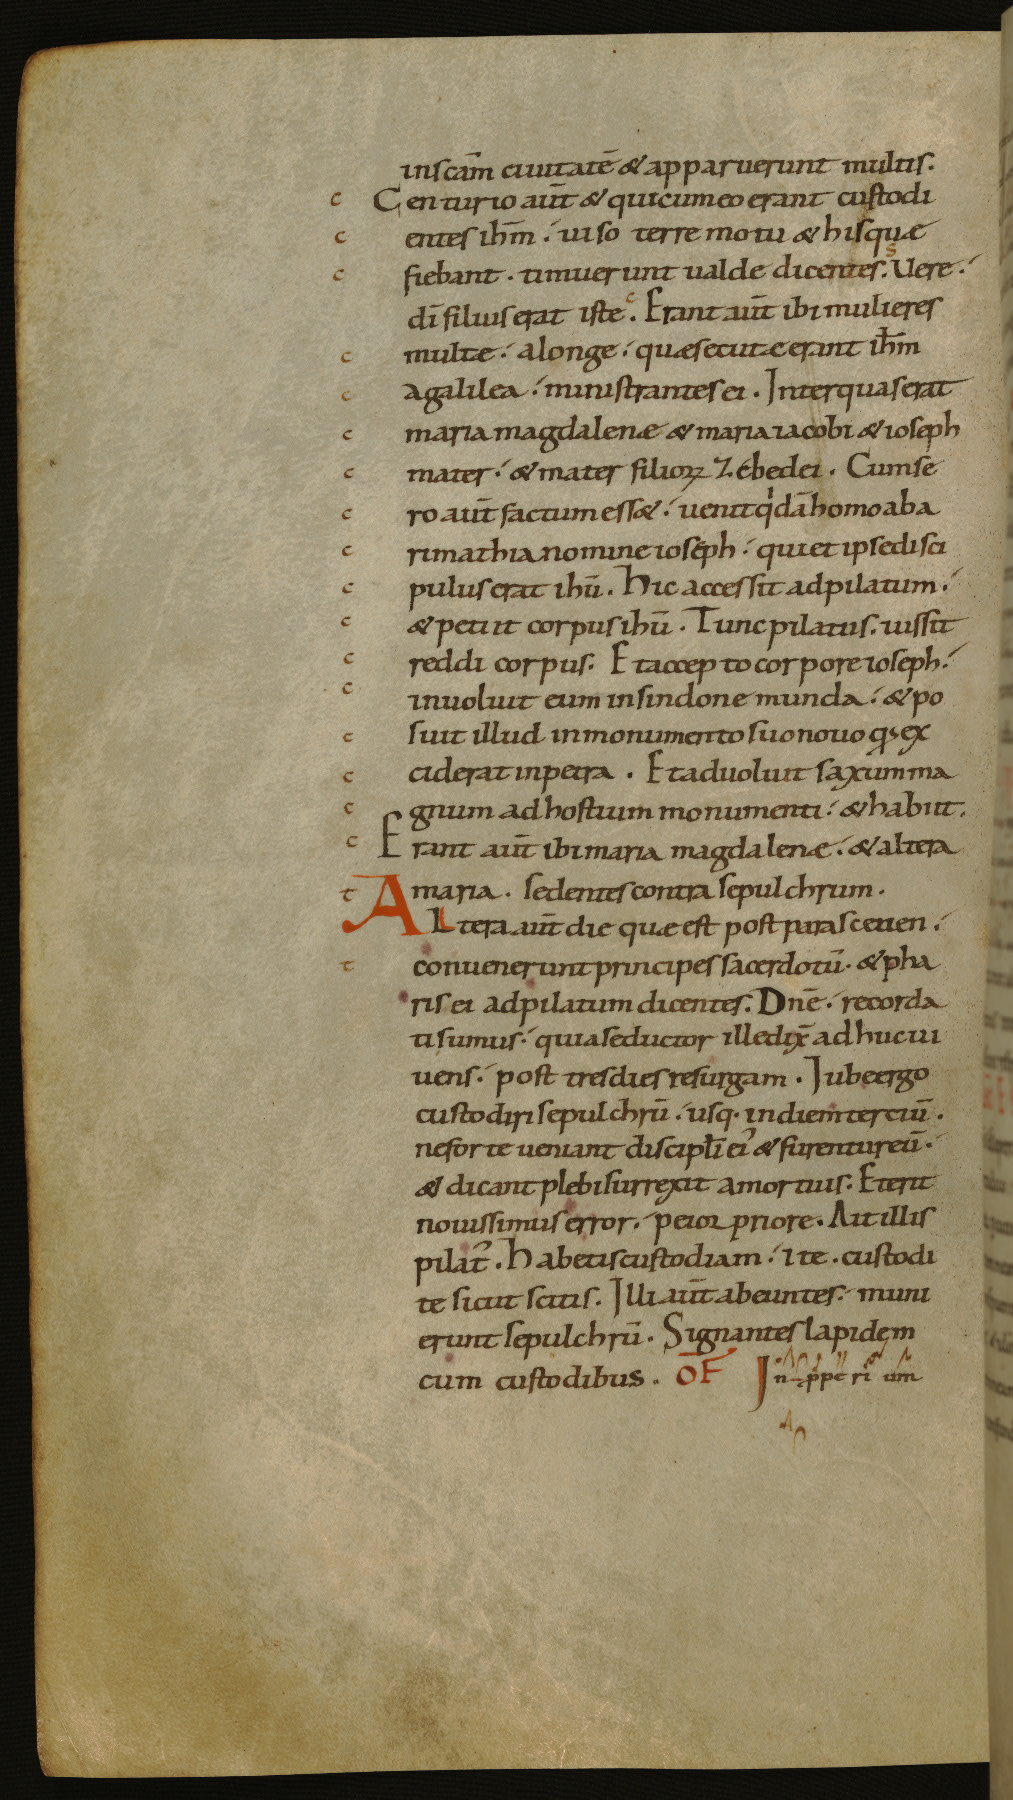 in scam̄ ciuitatē & apparuerunt multis.
c Centurio aut̄ & qui cum eo erant custodi
c entes ihm̄. uiso terre motu & his quæ
c fiebant. timuerunt ualde dicentes. s Uere.
dī filius erat iste. c Erant aut̄ ibi mulieres
c multe. a longe. quæ secutæ erant ihm̄
c a galilea. ministrantes ei. Inter quas erat
c maria magdalenæ & maria iacobi & ioseph
c mater. & mater filioꝝ zebedei. Cum se
c ro aut̄ factum ess&. uenit qidā homo ab a
c rimathia nomine ioseph. qui et ipse disci
c pulus erat ihū. Hic accessit ad pilatum.
c & petiit corpus ihū. Tunc pilatus. iussit
c reddi corpus. Et accepto corpore ioseph.
c inuoluit eum in sindone munda. & po
c suit illud in monumento suo nouo qđ ex
c ciderat in petra. Et aduoluit saxum ma
c gnum ad hostium monumenti. & habiit.
c Erant aut̄ ibi maria magdalenæ. & altera
t maria. sedentes contra sepulchrum.
ALtera aut̄ die quæ est post parasceuen.
t conuenerunt principes sacerdotū. & pha
risei ad pilatum dicentes. Dnē. recorda
ti sumus. quia seductor ille dix̄ adhuc ui
uens. post tres dies resurgam. Iube ergo
custodiri sepulchrū. usq. in diem terciū.
ne forte ueniant discipłi ei' & furentur eū.
& dicant plebi surrexit a mortuis. Et erit
nouissimus error. peior priore. Ait illis
pilat'. Habetis custodiam. ite. custodi
te sicut scitis. Illi aut̄ abeuntes. muni
erunt sepulchrū. Signantes lapidem
cum custodibus. OF̄ In pperi um